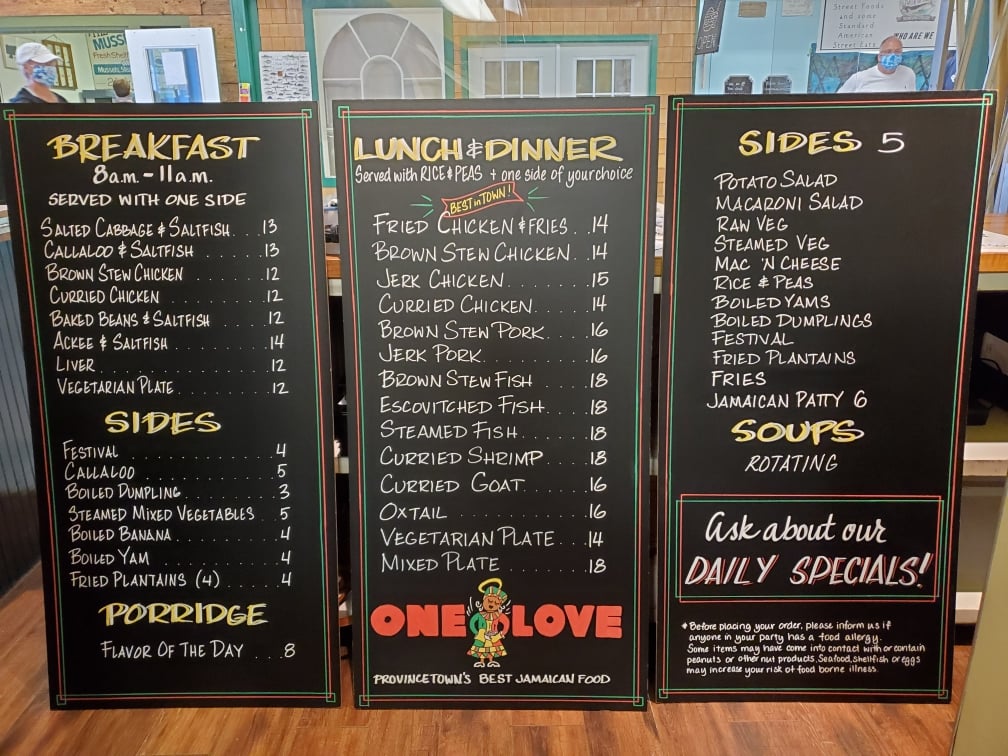 MUSS
Fresh Shell
Mussels, Ste
OPEN
Street Foods
and some
Standard
American
Street Eats
WHO ARE WE
BREAKFAST
8a.m. - 11a.m.
SERVED WITH ONE SIDE
SALTED CABBAGE & SALTFISH . . . 13
CALLALOO & SALTFISH . . . . . . 13
BROWN STEW CHICKEN . . . . . . . 12
CURRIED CHICKEN . . . . . . . . . 12
BAKED BEANS & SALTFISH . . . . . 12
ACKEE & SALTFISH . . . . . . . . 14
LIVER . . . . . . . . . . . . . . 12
VEGETARIAN PLATE . . . . . . . . 12
SIDES
FESTIVAL . . . . . . . . . . . . 4
CALLALOO . . . . . . . . . . . . 5
BOILED DUMPLING . . . . . . . . 3
STEAMED MIXED VEGETABLES . . 5
BOILED BANANA . . . . . . . . . 4
BOILED YAM . . . . . . . . . . . 4
FRIED PLANTAINS (4) . . . . . . 4
PORRIDGE
FLAVOR OF THE DAY . . . 8
LUNCH & DINNER
Served with RICE & PEAS + one side of your choice
BEST in TOWN!
FRIED CHICKEN & FRIES . . 14
BROWN STEW CHICKEN . . . 14
JERK CHICKEN . . . . . . . 15
CURRIED CHICKEN . . . . . 14
BROWN STEW PORK . . . . 16
JERK PORK . . . . . . . . . 16
BROWN STEW FISH . . . . . 18
ESCOVITCHED FISH . . . . 18
STEAMED FISH . . . . . . . 18
CURRIED SHRIMP . . . . . 18
CURRIED GOAT . . . . . . 16
OXTAIL . . . . . . . . . . . 16
VEGETARIAN PLATE . . . 14
MIXED PLATE . . . . . . . 18
ONE LOVE
PROVINCETOWN'S BEST JAMAICAN FOOD
SIDES 5
POTATO SALAD
MACARONI SALAD
RAW VEG
STEAMED VEG
MAC 'N CHEESE
RICE & PEAS
BOILED YAMS
BOILED DUMPLINGS
FESTIVAL
FRIED PLANTAINS
FRIES
JAMAICAN PATTY 6
SOUPS
ROTATING
Ask about our
DAILY SPECIALS!
* Before placing your order, please inform us if
anyone in your party has a food allergy.
Some items may have come into contact with or contain
peanuts or other nut products. Seafood, shellfish or eggs
may increase your risk of food borne illness.